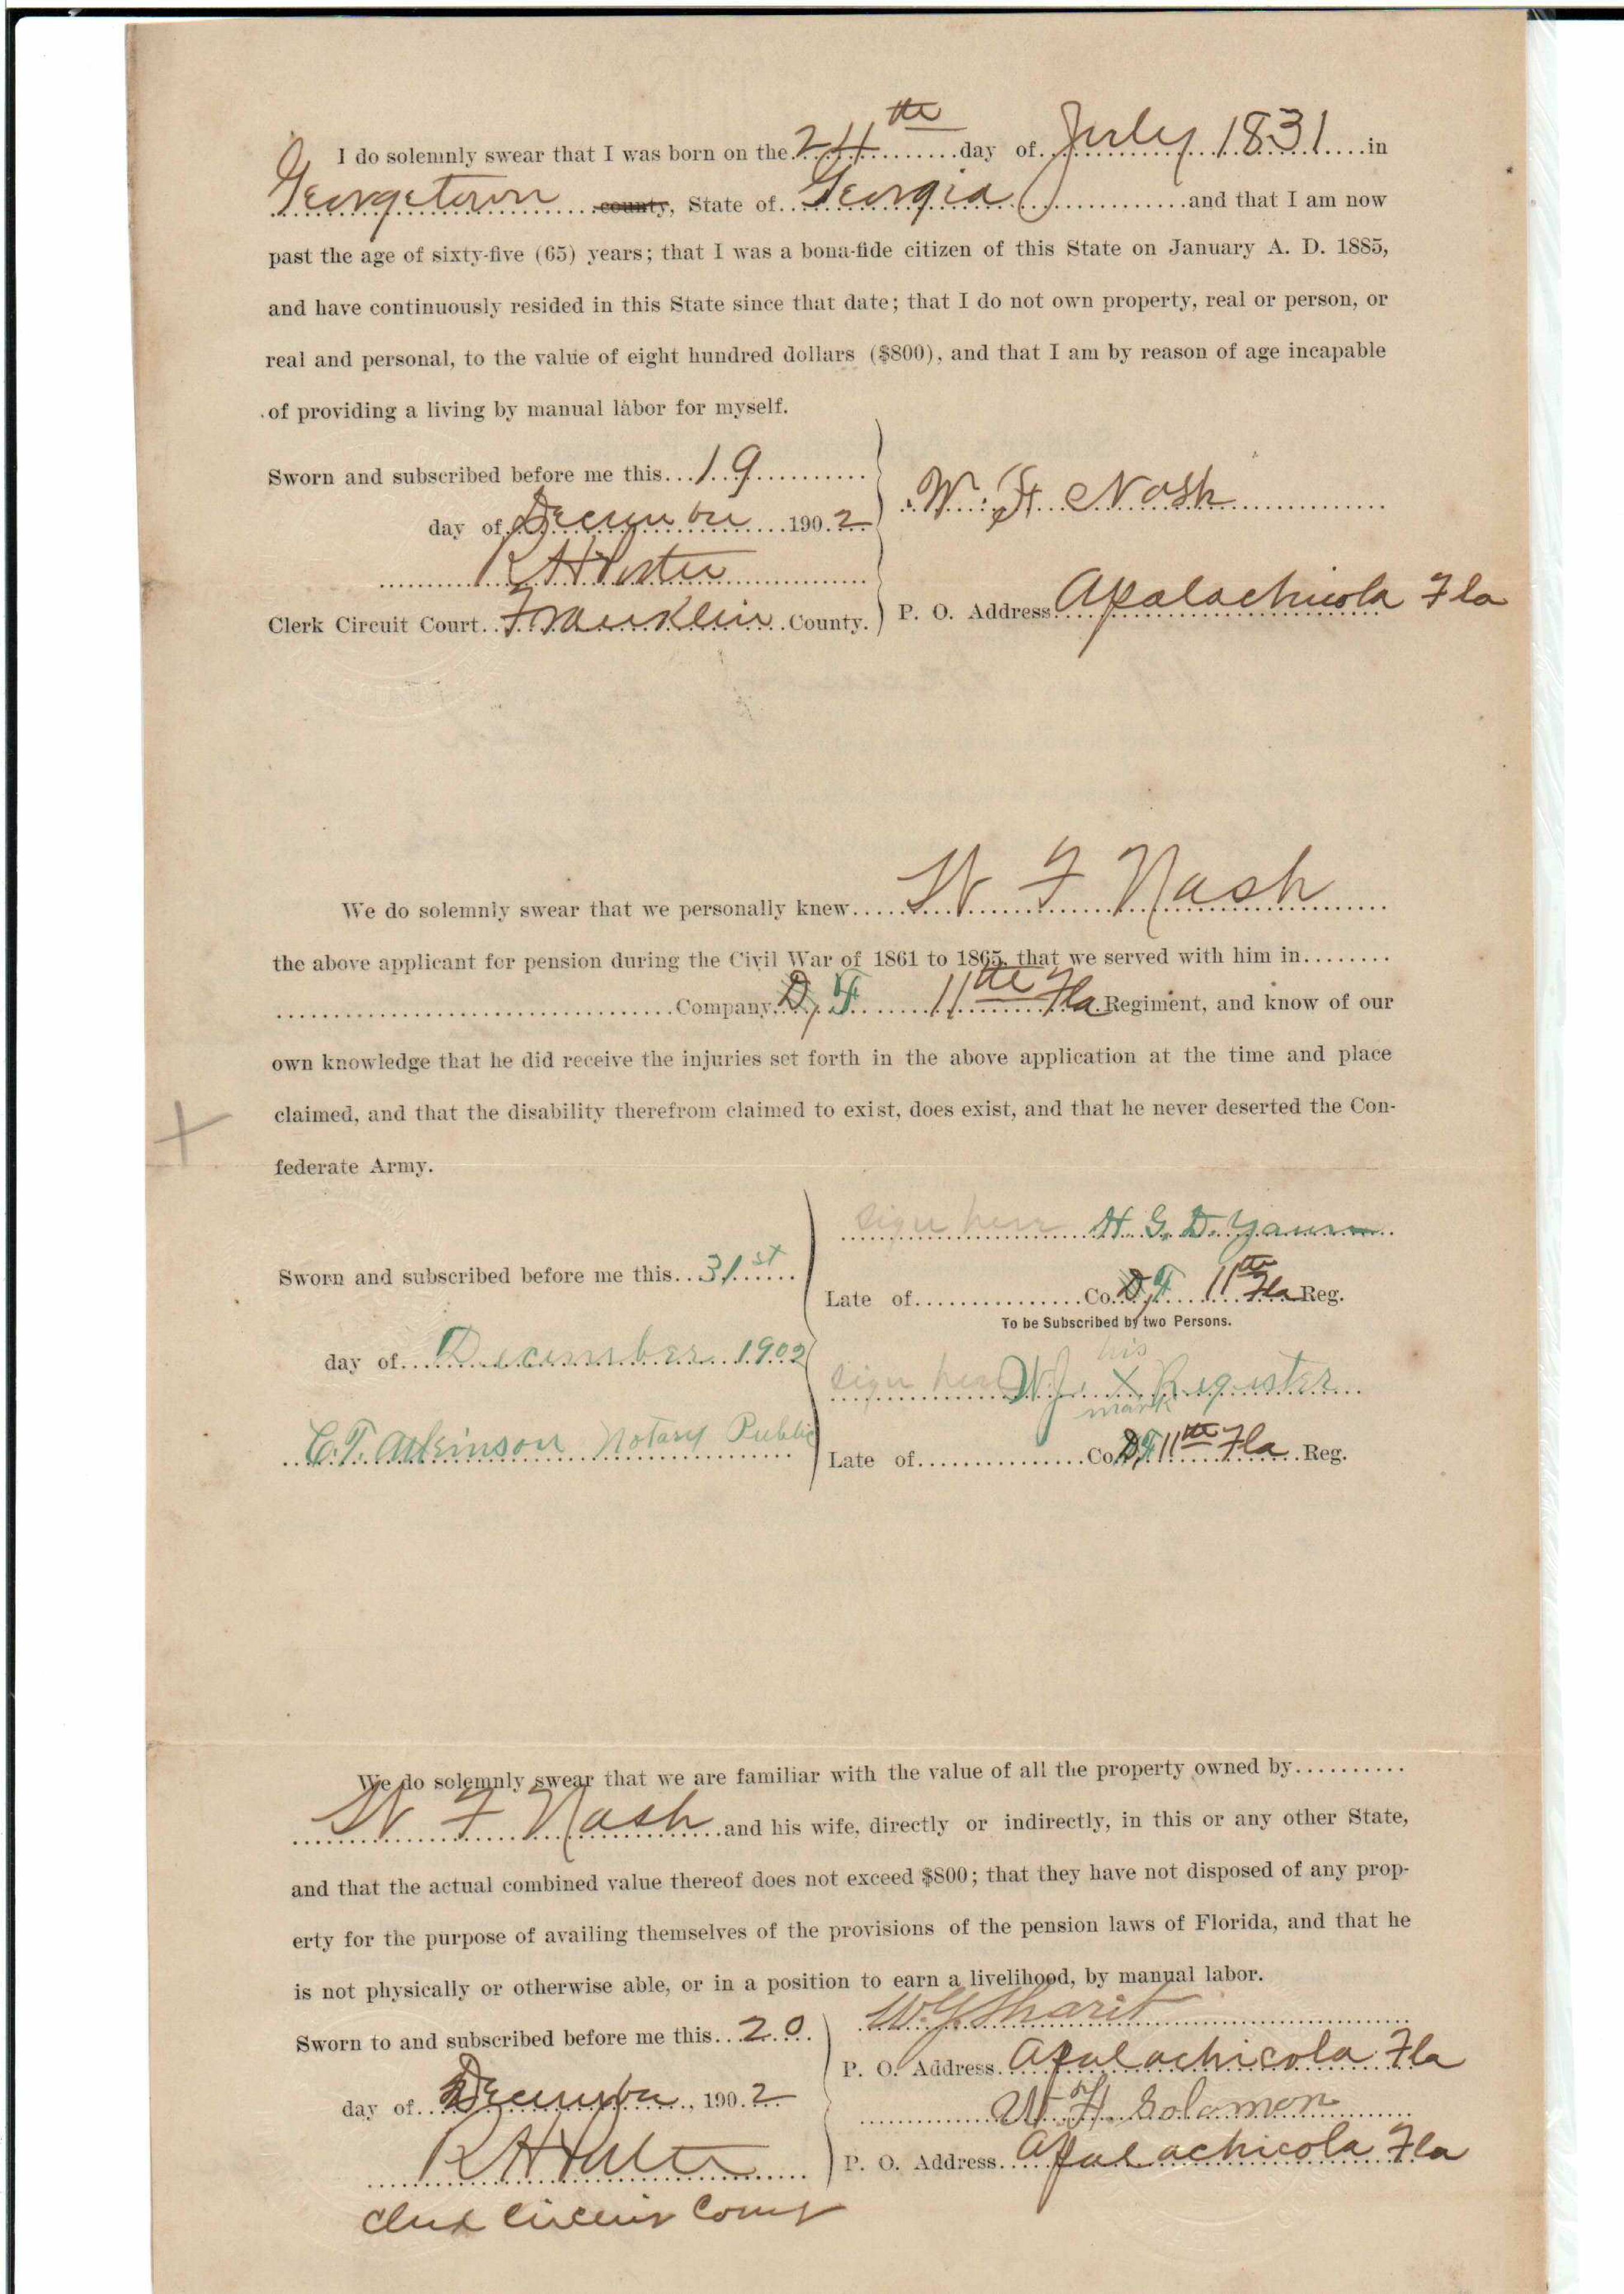 I do solemnly swear that I was born on the 24th day of July 1831 in
Georgetown county, State of Georgia and that I am now
past the age of sixty-five (65) years; that I was a bona-fide citizen of this State on January A. D. 1885,
and have continuously resided in this State since that date; that I do not own property, real or person, or
real and personal, to the value of eight hundred dollars ($800), and that I am by reason of age incapable
of providing a living by manual labor for myself.
Sworn and subscribed before me this 19
day of December 1902
W. F. Nash
R H Porter
Clerk Circuit Court Franklin County.
P. O. Address Apalachicola Fla
We do solemnly swear that we personally knew W F Nash
the above applicant for pension during the Civil War of 1861 to 1865, that we served with him in
Company D, F 11th Fla Regiment, and know of our
own knowledge that he did receive the injuries set forth in the above application at the time and place
claimed, and that the disability therefrom claimed to exist, does exist, and that he never deserted the Con-
federate Army.
sign here H. G. D.
Sworn and subscribed before me this 31st
Late of Co. D, F 11th Fla Reg.
To be Subscribed by two Persons.
day of December 1902
his
sign here W. J. X Register
mark
C. T. Atkinson Notary Public
Late of Co. D, F 11th Fla Reg.
We do solemnly swear that we are familiar with the value of all the property owned by
W F Nash and his wife, directly or indirectly, in this or any other State,
and that the actual combined value thereof does not exceed $800; that they have not disposed of any prop-
erty for the purpose of availing themselves of the provisions of the pension laws of Florida, and that he
is not physically or otherwise able, or in a position to earn a livelihood, by manual labor.
Sworn to and subscribed before me this 20
W. J. Sharit
P. O. Address Apalachicola Fla
day of December, 1902
W. H. Solomon
R H Porter
P. O. Address Apalachicola Fla
Clerk Circuit Court